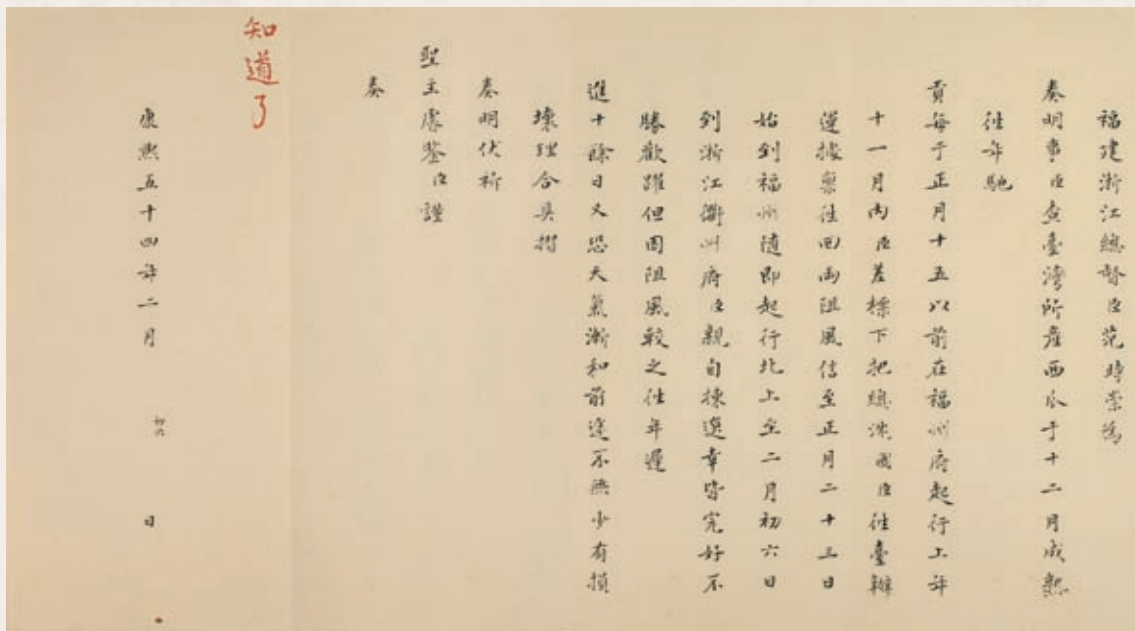 福建浙江總督臣范時崇為
奏明事臣查臺灣所產西瓜于十二月成熟
往年馳
貢每于正月十五以前在福州府起行上年
十一月內臣差標下把總國臣往臺辦
運據稟往回兩阻風信至正月二十三日
始到福州隨即起行北上至二月初六日
到浙江衢州府臣親自揀選幸皆完好不
勝歡躍但因阻風較之往年遲
進十餘日又恐天氣漸和前途不無少有損
壞理合具摺
奏明伏祈
聖主睿鑒臣謹
奏
知道了
康熙五十四年二月初六日